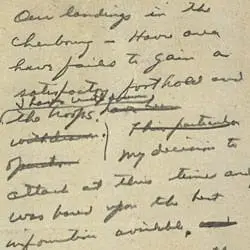 Our landings in the
Cherbourg - Havre area
have failed to gain a
satisfactory foothold and
I have withdrawn
the troops.
This particular
operation My decision to
attack at this time and
was based upon the best
information available, and